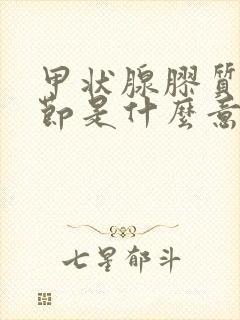 甲状腺膠質
節是什麼意
七星郁斗